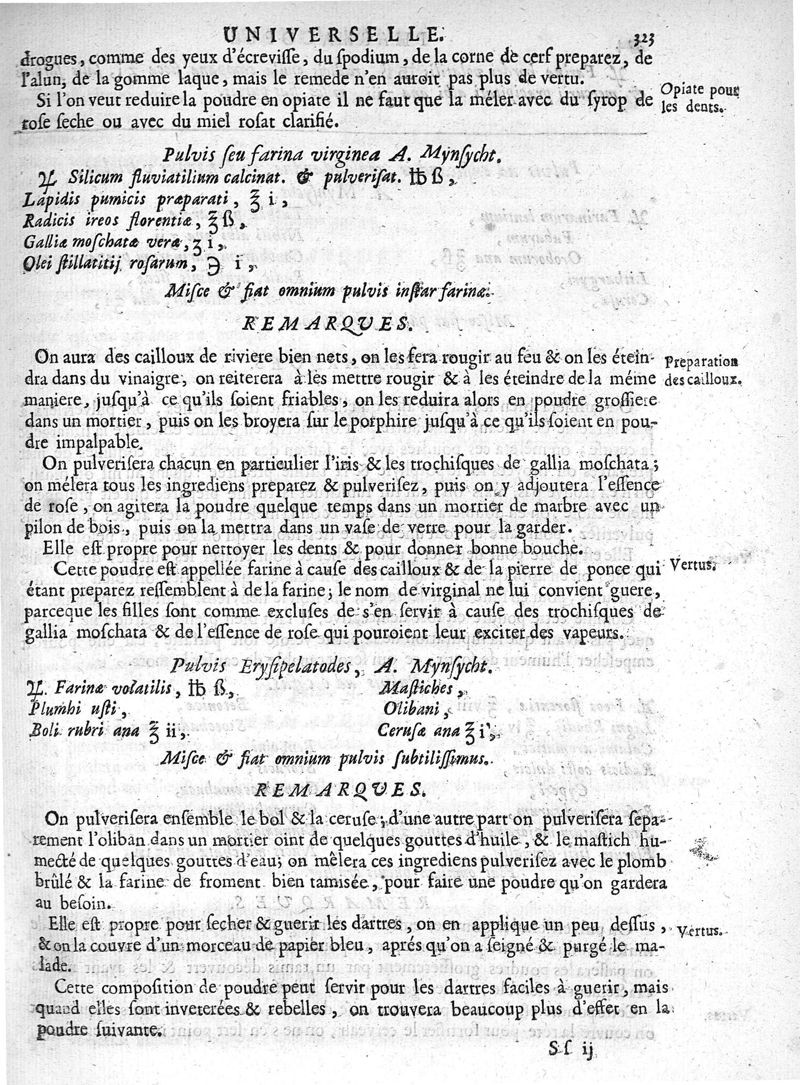 UNIVERSELLE. 323
drogues, comme des yeux d'écreviſſe, du ſpodium, de la corne de cerf preparez, de
l'alun, de la gomme laque, mais le remede n'en auroit pas plus de vertu.
Si l'on veut reduire la poudre en opiate il ne faut que la méler avec du ſyrop de
roſe ſeche ou avec du miel roſat clarifié.
Opiate pour
les dents.
Pulvis ſeu farina virginea A. Mynſycht.
♃. Silicum fluviatilium calcinat. & pulveriſat. ℔ ß,
Lapidis pumicis præparati, ℥ i,
Radicis ireos florentiæ, ℥ ß,
Galliæ moſchatæ veræ, ʒ i,
Olei ſtillatitij roſarum, ℈ i,
Miſce & fiat omnium pulvis inſtar farinæ.
REMARQUES.
On aura des cailloux de riviere bien nets, on les fera rougir au feu & on les étein-
dra dans du vinaigre, on reiterera à les mettre rougir & à les éteindre de la méme
maniere, juſqu'à ce qu'ils ſoient friables, on les reduira alors en poudre groſſiere
dans un mortier, puis on les broyera ſur le porphire juſqu'à ce qu'ils ſoient en pou-
dre impalpable.
Preparation
des cailloux.
On pulveriſera chacun en particulier l'iris & les trochiſques de gallia moſchata;
on mélera tous les ingrediens preparez & pulveriſez, puis on y adjoutera l'eſſence
de roſe, on agitera la poudre quelque temps dans un mortier de marbre avec un
pilon de bois, puis on la mettra dans un vaſe de verre pour la garder.
Elle eſt propre pour nettoyer les dents & pour donner bonne bouche.
Cette poudre eſt appellée farine à cauſe des cailloux & de la pierre de ponce qui
étant preparez reſſemblent à de la farine; le nom de virginal ne lui convient guere,
parceque les filles ſont comme excluſes de s'en ſervir à cauſe des trochiſques de
gallia moſchata & de l'eſſence de roſe qui pouroient leur exciter des vapeurs.
Vertus.
Pulvis Eryſipelatodes, A. Mynſycht.
♃. Farinæ volatilis, ℔ ß,
Plumbi uſti,
Boli rubri ana ℥ ii,
Maſtiches,
Olibani,
Ceruſæ ana ℥ i,
Miſce & fiat omnium pulvis ſubtiliſſimus.
REMARQUES.
On pulveriſera enſemble le bol & la ceruſe; d'une autre part on pulveriſera ſepa-
rement l'oliban dans un mortier oint de quelques gouttes d'huile, & le maſtich hu-
mecté de quelques gouttes d'eau; on mêlera ces ingrediens pulveriſez avec le plomb
brûlé & la farine de froment bien tamiſée, pour faire une poudre qu'on gardera
au beſoin.
Elle eſt propre pour ſecher & guerir les dartres, on en applique un peu deſſus,
& on la couvre d'un morceau de papier bleu, aprés qu'on a ſeigné & purgé le ma-
lade.
Vertus.
Cette compoſition de poudre peut ſervir pour les dartres faciles à guerir, mais
quand elles ſont inveterées & rebelles, on trouvera beaucoup plus d'effet en la
poudre ſuivante.
Sſ ij